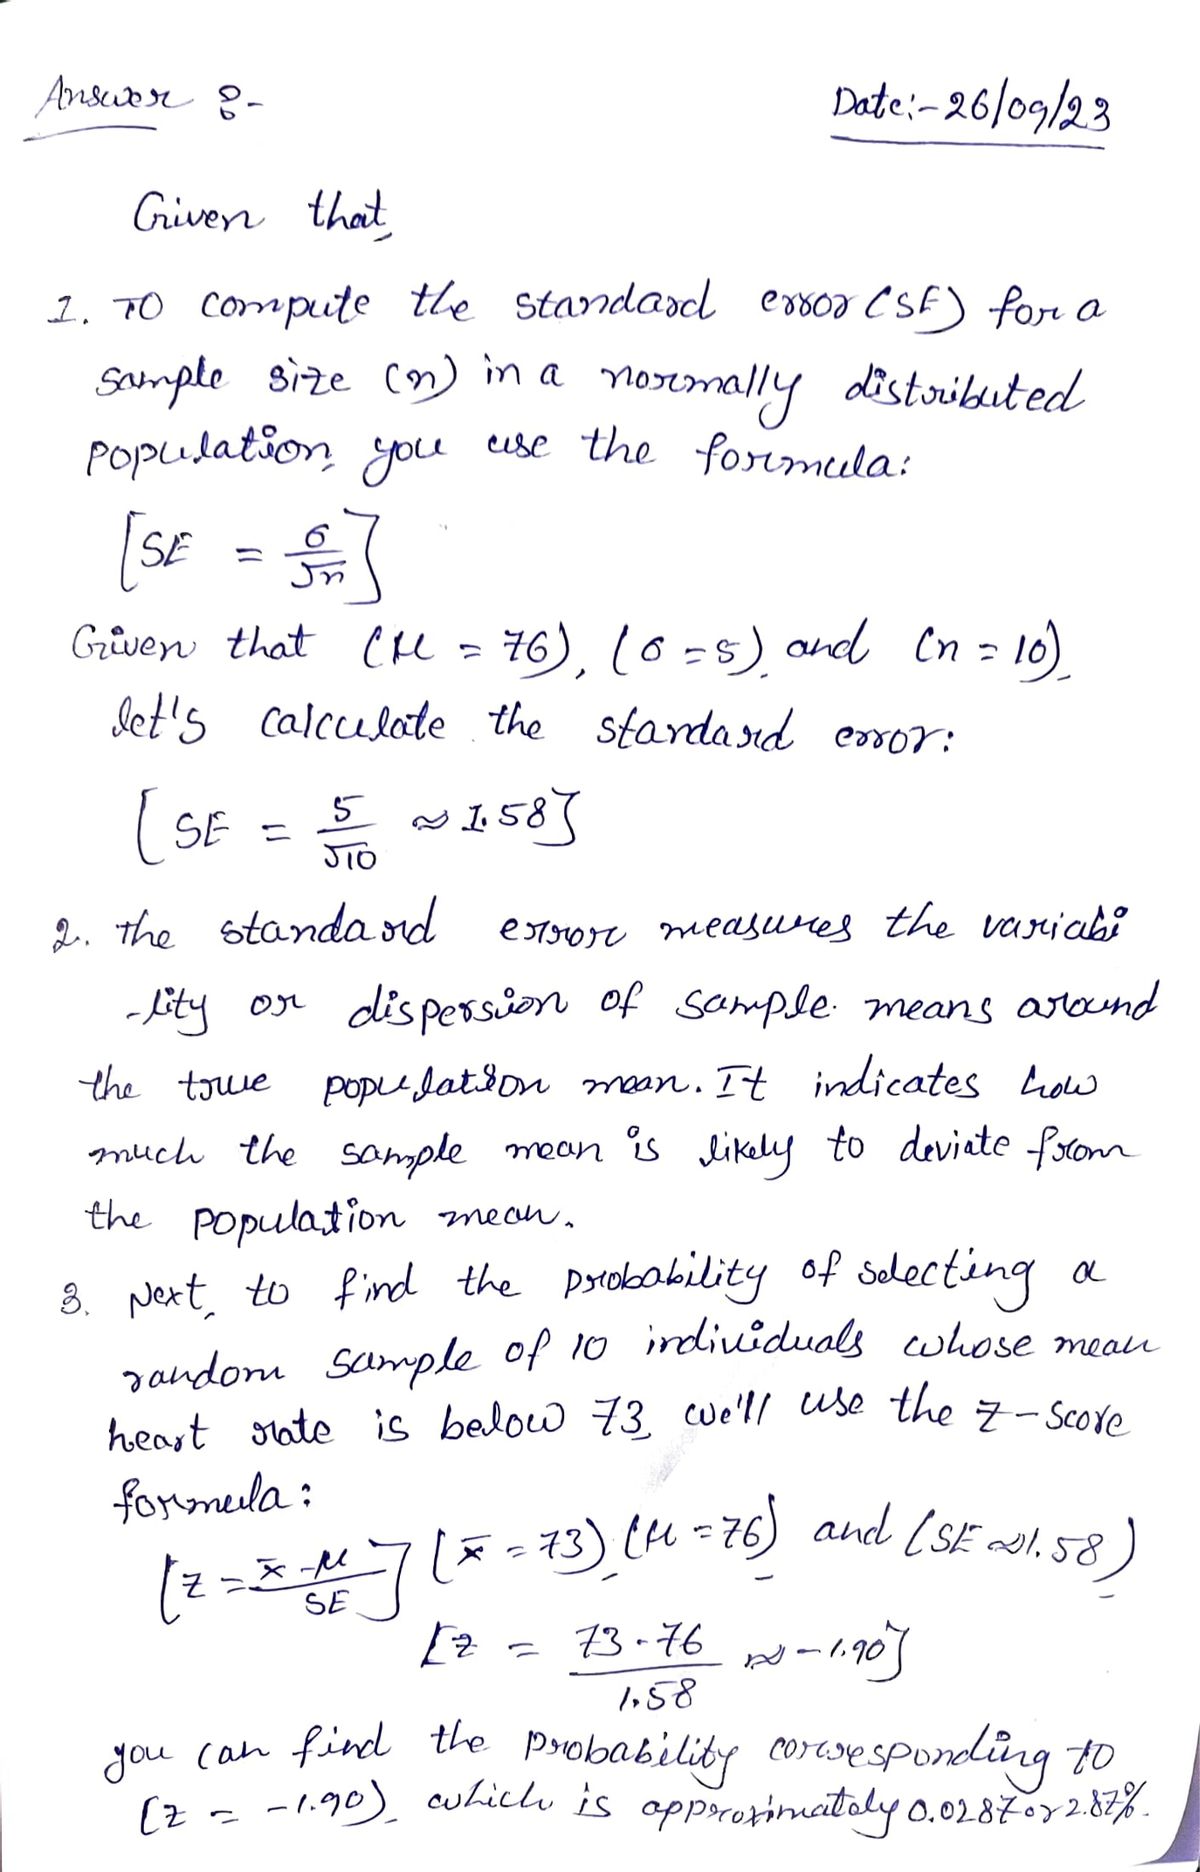 Answer :-
Date:- 26/09/23
Given that,
1. To compute the standard error (SE) for a
sample size (n) in a normally distributed
population, you use the formula:
[SE = σ/√n]
Given that (μ = 76), (σ = 5), and (n = 10),
let's calculate the standard error:
[SE = 5/√10 ≈ 1.58]
2. The standard error measures the variabi
-lity or dispersion of sample means around
the true population mean. It indicates how
much the sample mean is likely to deviate from
the population mean.
3. Next, to find the probability of selecting a
random sample of 10 individuals whose mean
heart rate is below 73, we'll use the z-score
formula:
[z = x̄ - μ / SE] (x̄ = 73), (μ = 76) and (SE ≈ 1.58)
[z = 73 - 76 / 1.58 ≈ -1.90]
you can find the probability corresponding to
(z = -1.90), which is approximately 0.0287 or 2.87%.